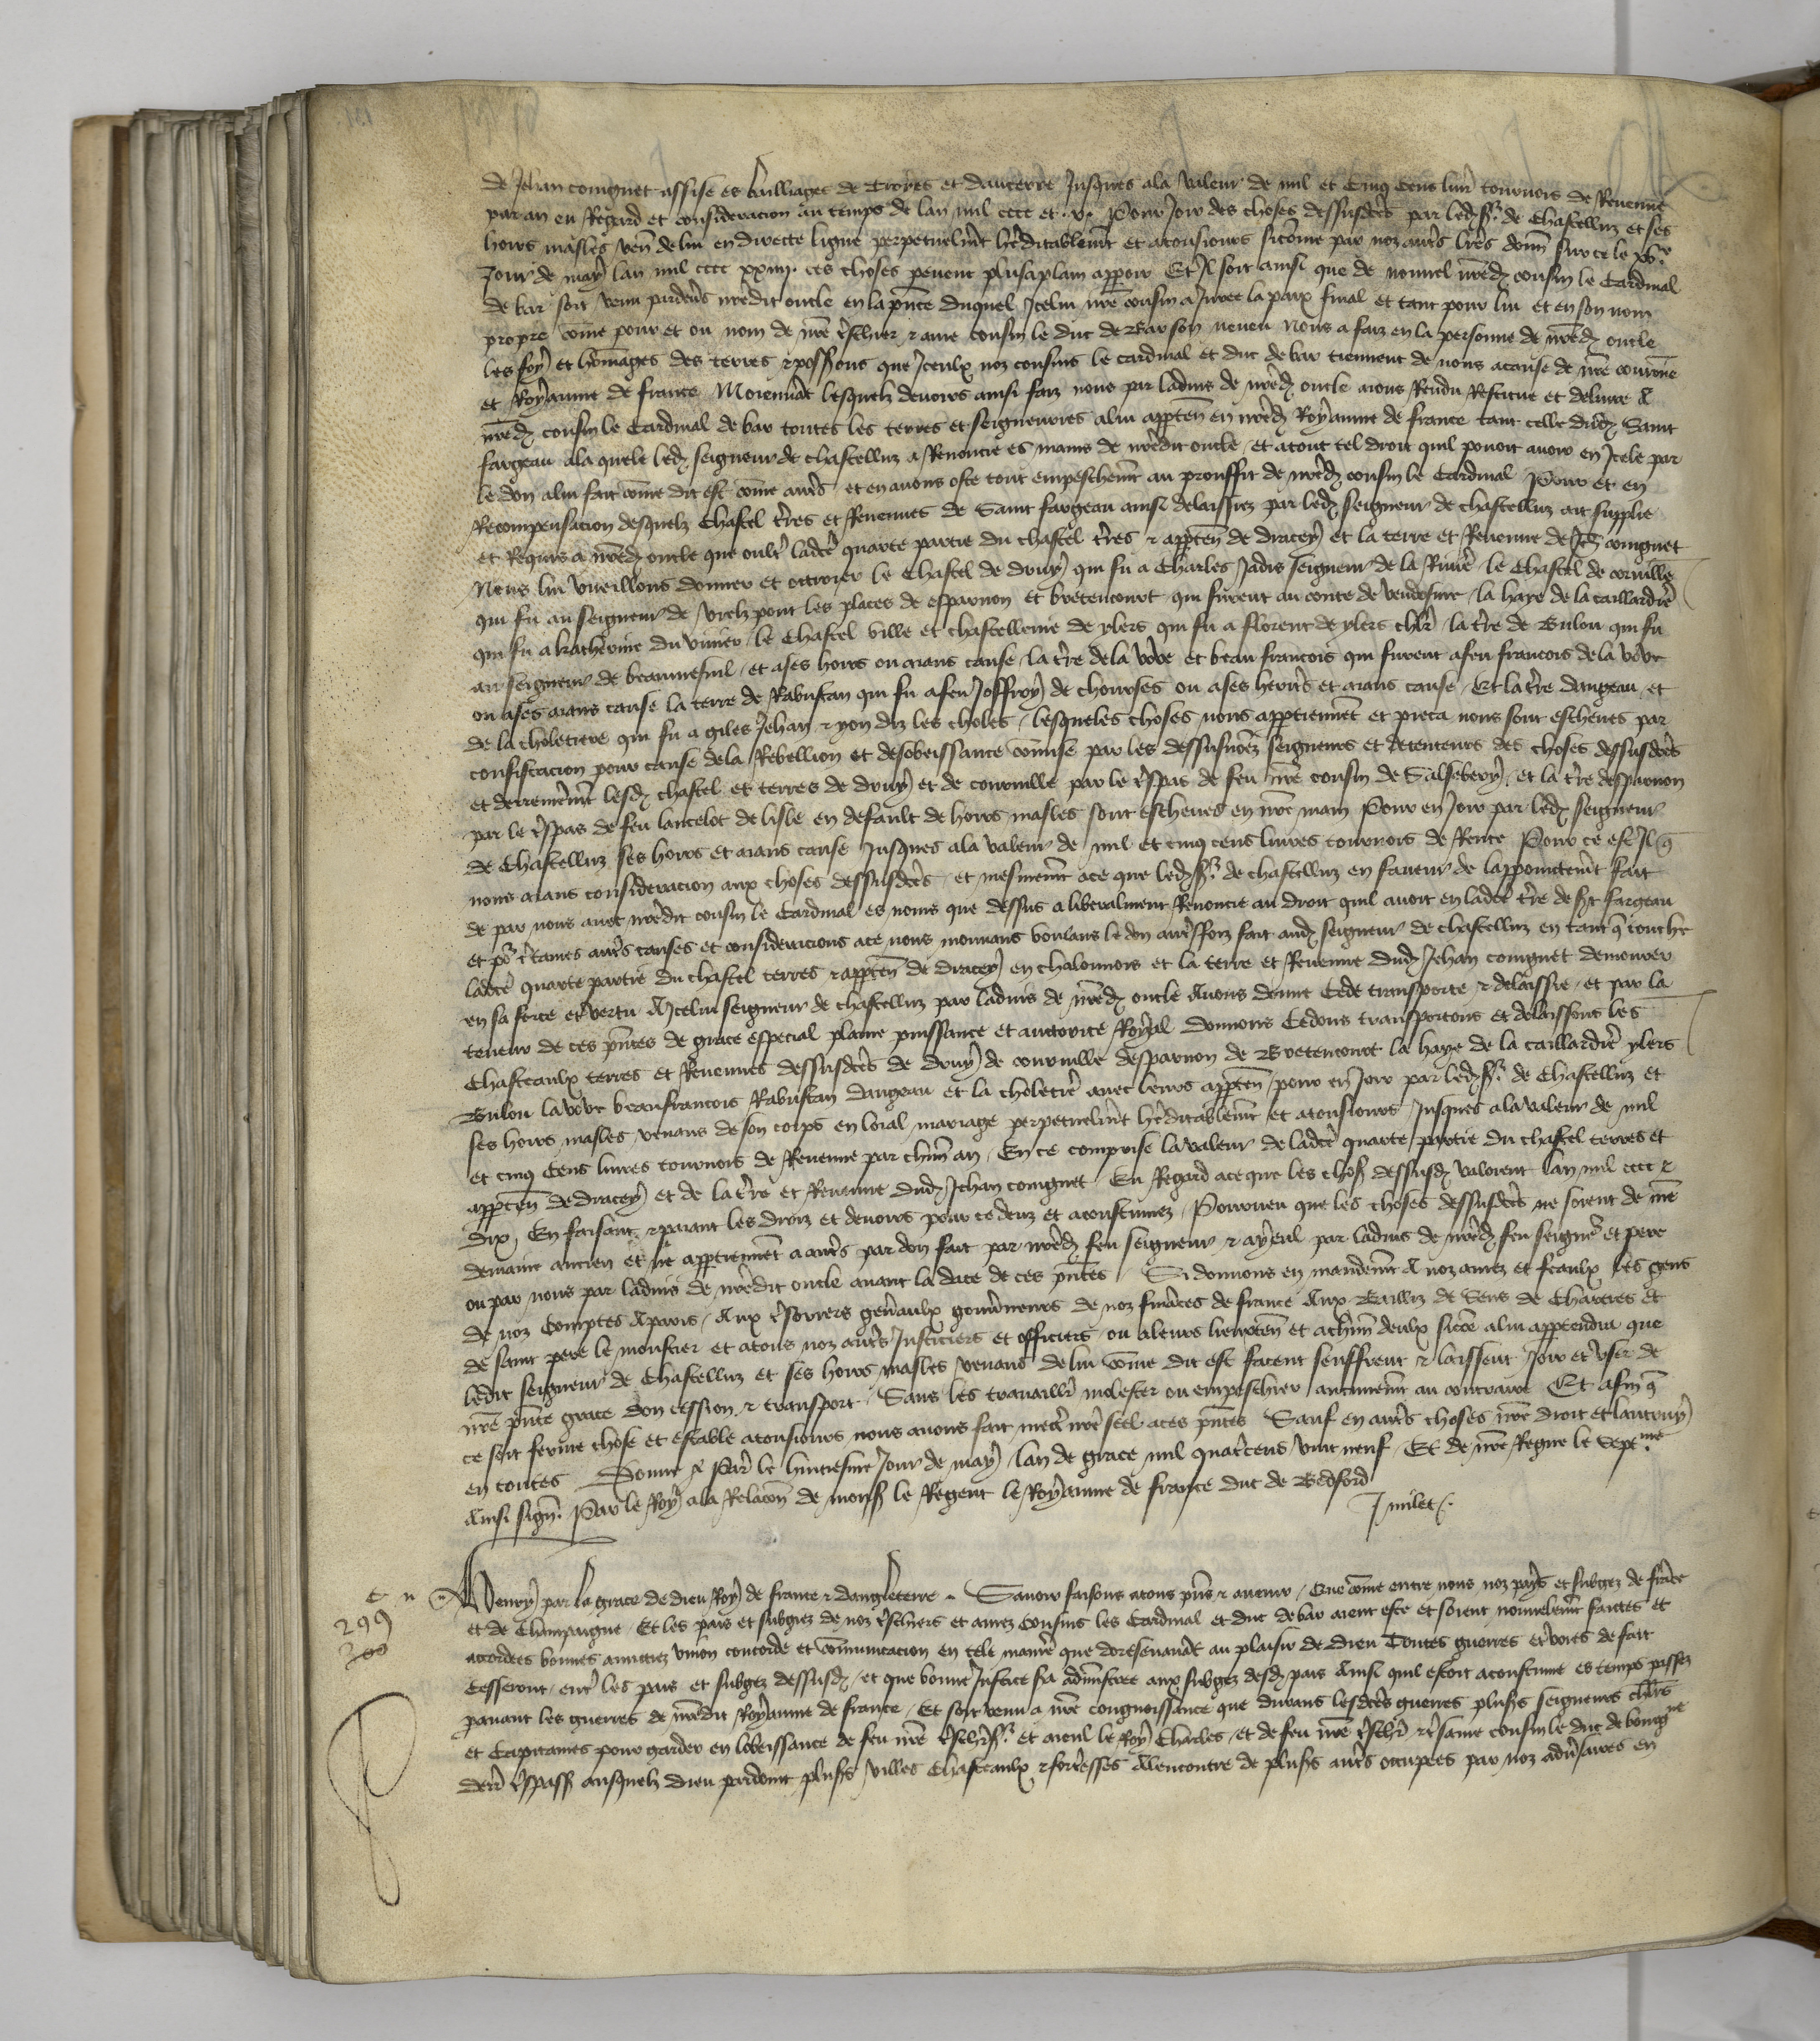 de Jehan coignet assise es bailliages de Troyes et daucerre Jusques ala valeur de mil et Cinq Cens livr̃ tournois de Revenue
par an eu Regard et consideracion au temps de lan mil cccc et .x. Pour Joir des choses dessusdc̃es par led. sr̃ de Chastelluz et ses
hoirs masles ven̄ de lui en directe ligne perpetuelm̃t heditablem̃t et atousiours sicõme par noz autr̃s lr̃es donñ sur ce le
Jour de may lan mil cccc xxiiij. ces choses peuent plusaplain apparoir Et Il soit ainsi que de nouuel nr̃ed. cousin le Cardinal
de bar soit venu pardeũs nr̃edit oncle en la pñce duquel Icelui nr̃e cousin a Juree la paix final et tant pour lui et en son nom
propre cõme pour et ou nom de nr̃e tr̃eschier & ame cousin le duc de Bar son neueu Nous a faiz en la personne de nr̃ed. oncle
les foy et hõmages des terres & poss̃ions que Iceulx noz cousins le cardinal et duc de bar tiennent de nous acause de nr̃e couronne
et Royaume de france Moiennãt lesquelz deuoirs ainsi faiz nous par laduis de nr̃ed. oncle aions Rendu Restitue et deliure A
nr̃ed. cousin le Cardinal de bar toutes les terres et seigneuries alui apparteñ en nr̃ed. Royaume de france tant celle dud. Saint
fargeau ala quele led. seigneur de chastelluz a Renoncie es mains de nr̃edit oncle et atout tel droit quil pouoit auoir en Icele par
le don alui fait cõme dit est cõme autr̃s et en auons oste tout empeschem̃t au prouffit de nr̃ed. cousin le Cardinal Pour et en
Recompensacion desquelz Chastel tr̃res et Reuenues de Saint fargeau ainsi delaissiez par led. seigneur de chastelluz ait supplie
et Requis a nr̃ed. oncle que oultr̃ ladc̃e quarte partie du chastel tr̃res & apparteñ de dracey et la terre et Reuenue de Jeh. coignet
Nous lui vueillons donner et octroier le Chastel de Drouy qui fu a Charles Jadis seigneur de la Riuiere le Chastel de coruille
qui fu au seigneur de vielz pont les places de esparnon et bretencourt qui furent au conte de vendosme la haye de la taillardiẽ
qui fu a katherine du viuier le Chastel ville et chastellenie de ylers qui fu a florent de ylers chlr̃ la tr̃re de Bulou qui fu
au seigneur de beaumesnil et ases hoirs ou aians cause la tr̃re de la vove et beau francois qui furent afeu francois de la vove
ou ases aians cause la terre de Rabestan qui fu afeu Joffroy de chourses ou ases heritiẽs et aians cause Et la tr̃re dangeau et
de la choletiere qui fu a giles Jehan & yon diz les cholez lesqueles choses nous apptiennẽt et pieca nous sont escheues par
confiscacion pour cause dela Rebellion et desobeissance cõmise par les dessusnõmez seigneurs et detenteurs des choses dessusdc̃es
et derrenierem̃t lesd. chastel et terres de drouy et de couruille par le tr̃espas de feu nr̃e cousin de Salsebery et la tr̃re desparnon
par le tr̃espas de feu lancelot de lisle en default de hoirs masles sont escheues en nr̃e main Pour en Joir par led. seigneur
de Chastelluz ses hoirs et aians cause Jusques ala valeur de mil et cinq cens liures tournois de Rente Pour ce est Il q̃
nous aians consideracion aux choses dessusdc̃es et mesmem̃t ace que led. sr̃ de chastelluz en faueur de lappoinctem̃t fait
de par nous auec nr̃edit cousin le Cardinal es noms que dessus a liberalment Renoncie au droit quil auoit en ladc̃e tr̃re de st fargeau
et por c̃taines autr̃s causes et consideracions ace nous mouuans voulans le don autreffoiz fait aud. seigneur de chastelluz en tant q̃ touche
ladc̃e quarte partie du chastel terres & apparteñ de dracey en chalonnois et la terre et Reuenue dud. Jehan coingnet demourer
en sa force et vertu A Icelui seigneur de chastelluz par laduis de nr̃ed. oncle Auons donne Cede transporte & delaissie et par la
teneur de ces pñtes de grace especial plaine puissance et auctorite Royal donnons Cedons transportons et delaissons les
Chasteaulx terres et Reuenues dessusdc̃es de drouy de couruille desparnon de Bretencourt la haye de la taillardiẽ ylers
Bulou la vove beaufrancois Rabestan dangeau et la choletiẽ auec leurs apparteñ pour en Joir par led. sr̃ de Chastelluz et
ses hoirs masles venans de son corps en loial mariage perpetuelm̃t heditablem̃t et atousiours Jusques ala valeur de mil
et cinq Cens liures tournois de Reuenue par chũn an En ce comprise la valeur de ladc̃e quarte partie du chastel terres et
apparteñ de dracey et de la tr̃re et Reuenue dud. Jehan coingnet Eu Regard ace que les chos̃ dessusd. valoient lan mil cccc &
dix En faisant & paiant les droiz et deuoirs pour ce deuz et acoustumez Pourueu que les choses dessusdc̃es ne soient de nr̃e
demaine ancien et ne apptiennẽt a autr̃s par don fait par nr̃ed. feu seigneur & ayeul par laduis de nr̃ed. feu seignr̃ et pere
ou par nous par laduis de nr̃edit oncle auant la date de ces pñtes Si donnons en mandem̃t A noz amez et feaulx les gens
de noz Comptes Aparis Aux tr̃esoriers geñaulx gouũneurs de noz finãces de france Aux Bailliz de Sens de Chartres et
de saint pere le moustier et atous noz autr̃s Justiciers et officiers ou aleurs lieuxteñ et achũn deulx sicõe alui apptendra que
ledit seigneur de Chastelluz et ses hoirs masles venans de lui cõme dit est facent seuffrent & laissent Joir et vser de
nr̃e pñte grace don cession & transport Sans les trauaillr̃ molester ou empeschier aucunem̃t au contraire Et afin q̃
ce soit ferme chose et estable atousiours nous auons fait mettr̃ nr̃e seel aces pñtes Sauf en autr̃s choses nr̃e droit et lautruy
en toutes Donne a Par̃ le huitiesme Jour de may lan de grace mil quatr̃cens vint neuf Et de nr̃e Regne le Septme
Ainsi sign̄. Par le Roy ala Relacõn de mons̃ le Regent le Royaume de france duc de Bedford
J milet
299
300
Henry par la grace de dieu Roy de france & dangleterre Sauoir faisons atous pñs & auenir Que cõme entre nous noz pays et subgez de frãce
et de Champaigne Et les pais et subgiez de noz tr̃eschiers et amez Cousins les Cardinal et duc de bar aient este et soient nouuelem̃t faictes et
accordees bonnes amictiez vnion concorde et cõmunicacion en tele manieẽ que doresenauãt au plaisir de dieu Toutes guerres et voies de fait
Cesseront entr̃ les pais et subgez dessusd. et que bonne Justice sera administree aux subgez desd. pais Ainsi quil estoit acoustume es temps passez
parauant les guerres de nr̃edit Royaume de france Et soit venu a nr̃e congnoissance que durans lesdc̃es guerres pluss̃ seigneurs chlr̃s
et Capitaines pour garder en lobeissance de feu nr̃e tr̃eschr̃ sr̃ et aieul le Roy Charles et de feu nr̃e tr̃eschr̃ & tr̃esame cousin le duc de bourgne
derr̃ tr̃espass̃ ausquelz dieu pardoint pluss̃ villes Chasteaulx & forteresses Alencontre de pluss̃ autr̃s occupees par noz adũsaires en